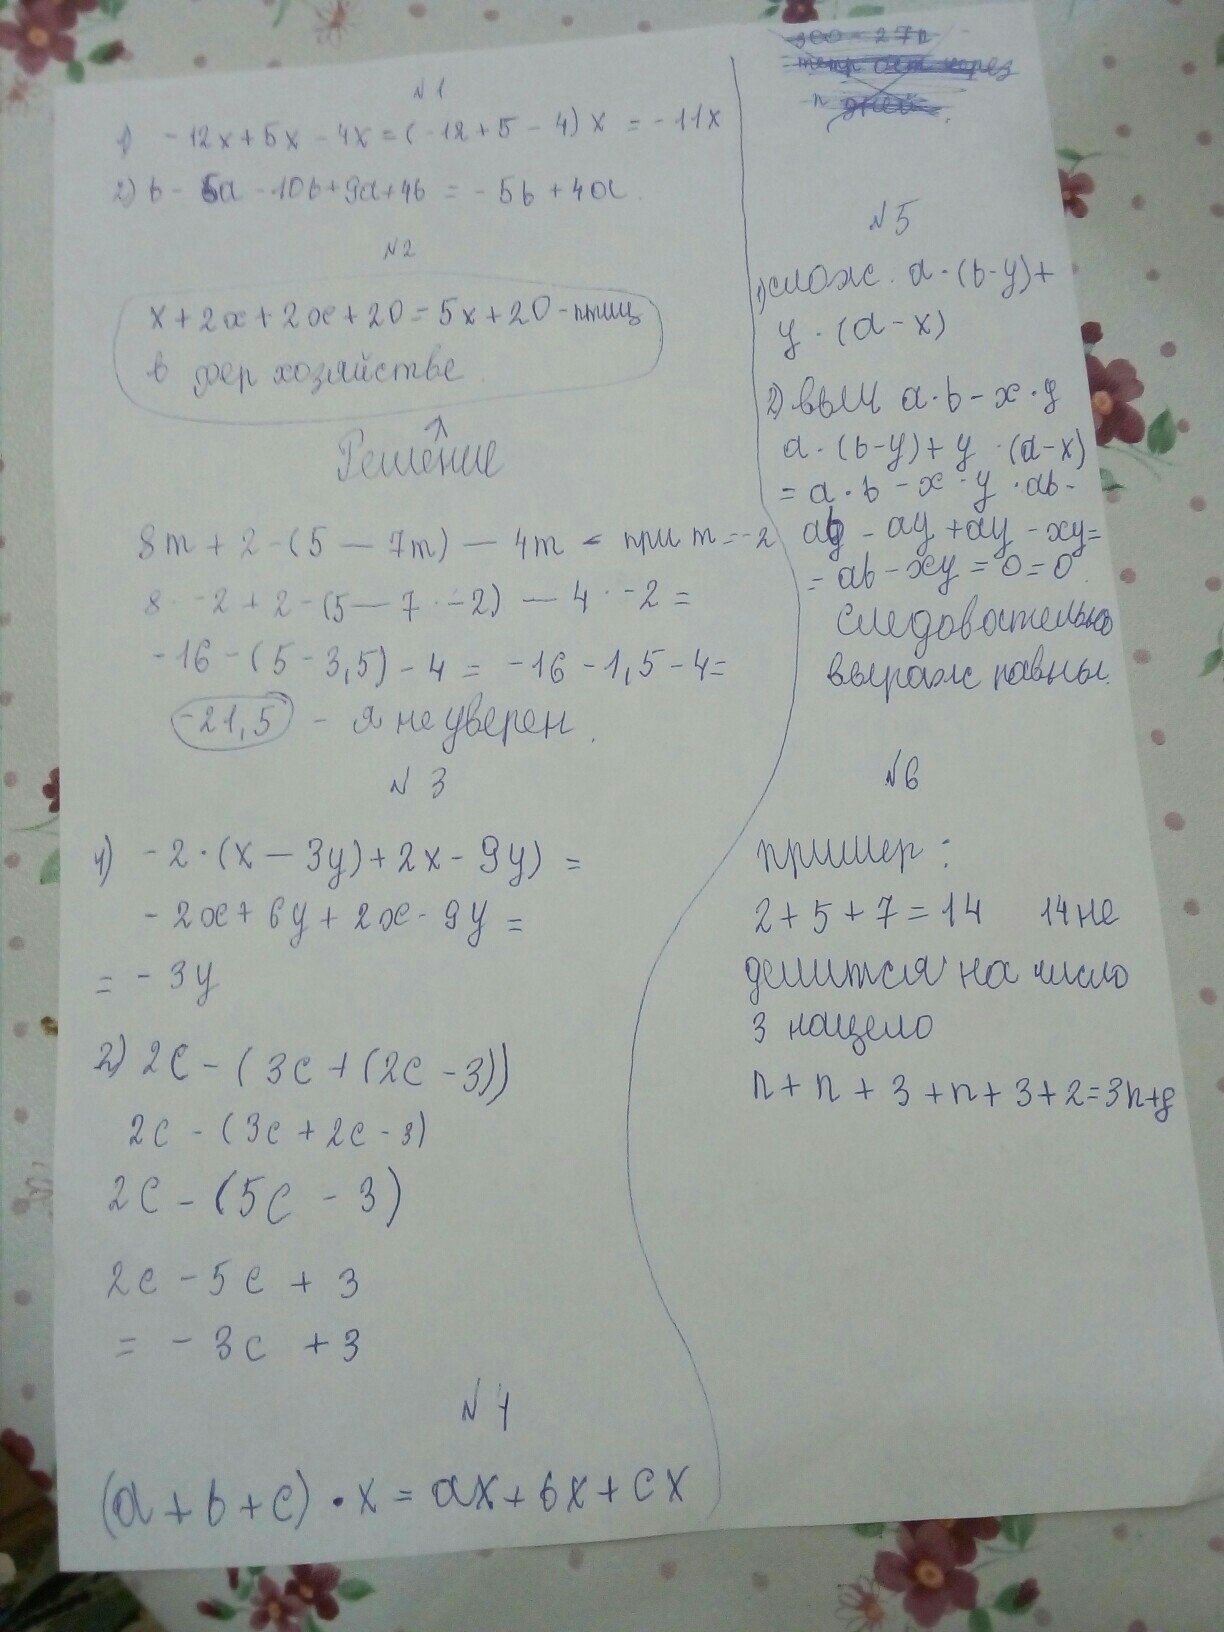 N 1
1) - 12x + 5x - 4x = (-12 + 5 - 4) x = - 11x
2) b - 5a - 10b + 9a + 4b = - 5b + 4a
N 2
x + 2x + 2x + 20 = 5x + 20 - птиц
в фер хозяйстве
Решение
8m + 2 - (5 - 7m) - 4m - при m = -2
8 · -2 + 2 - (5 - 7 · -2) - 4 · -2 =
-16 - (5 - 3,5) - 4 = -16 - 1,5 - 4 =
-21,5 - я не уверен.
N 3
1) -2 · (x - 3y) + 2x - 9y) =
- 2x + 6y + 2x - 9y =
= - 3y
2) 2c - (3c + (2c - 3))
2c - (3c + 2c - 3)
2c - (5c - 3)
2c - 5c + 3
= - 3c + 3
N 4
(a + b + c) · x = ax + bx + cx
300 - 27n
через
n дней
N 5
1) слож. a · (b - y) +
y · (a - x)
2) выч a · b - x · y
a · (b - y) + y · (a - x)
= a · b - x · y · ab -
- ay + ay - xy =
= ab - xy = 0 = 0
следовательно
выраж равны.
N 6
пример :
2 + 5 + 7 = 14 14 не
делится на число
3 нацело
n + n + 3 + n + 3 + 2 = 3n + 8